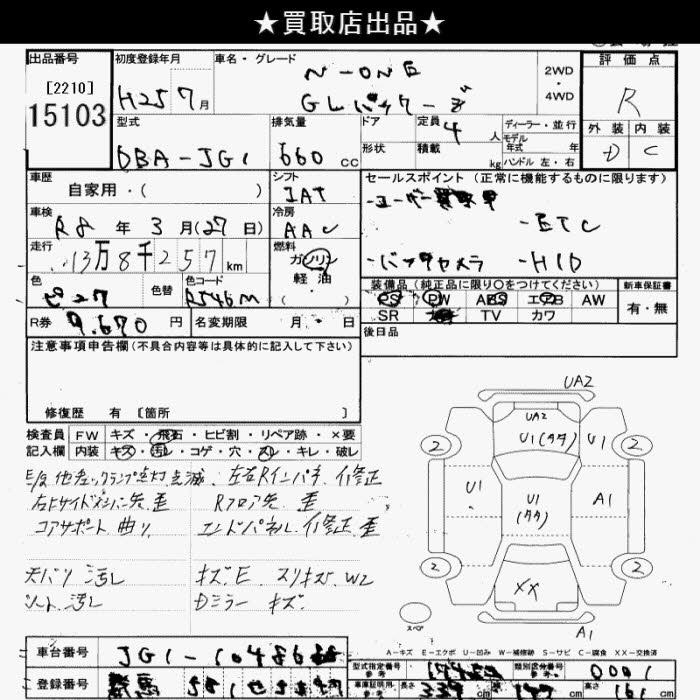 ★買取店出品★
出品番号 初度登録年月 車名・グレード 評価点
[2210] N-ONE 2WD
15103 H25 7月 GLパッケージ ・4WD R
型式 排気量 ドア 定員 4人 ディーラー・並行 外装 内装
モデル年式 年
DBA-JG1 660cc 形状 積載 kg ハンドル 左・右 D C
車歴 シフト セールスポイント(正常に機能するものに限ります)
自家用・( ) IAT -ユーザー買取車
車検 冷房 -ETC
R8年3月(27日) AAC
走行 燃料 -バックカメラ -HID
13万8千257km ガソリン
軽油
( )
色 色替 色コード 装備品(純正品に限り○をつけてください) 新車保証書
R546M PS PW ABS エアB AW 有・無
R券 9.670円 名変期限 月・日 SR TV カワ
注意事項申告欄(不具合内容等は具体的に記入して下さい) 後日品
修復歴 有 [箇所 ]
検査員 FW キズ・飛石・ヒビ割・リペア跡・×要
記入欄 内装 キズ・汚れ・コゲ・穴・スレ・キレ・破レ
左右Rインパネ 修正
右Fサイドメンバー先 歪 Rフロア先 歪
コアサポート 曲り エンドパネル 修正、歪
天バリ 汚レ キズ、E、スリキズ、W2
シート 汚レ Dミラー キズ
UA2
UA2
U1(タタ) U1
2 2
U1 U1(タタ) A1
2 2
XX
スペア A1
A-キズ E-エクボ U-凹み W-補修跡 S-サビ C-腐食 XX-交換済
車台番号 JG1-10486 型式指定番号 参考 類別区分番号 参考 0001
登録番号 群馬 581 車庫証明用 参考 長さ 339cm 幅 147cm 高さ 161cm